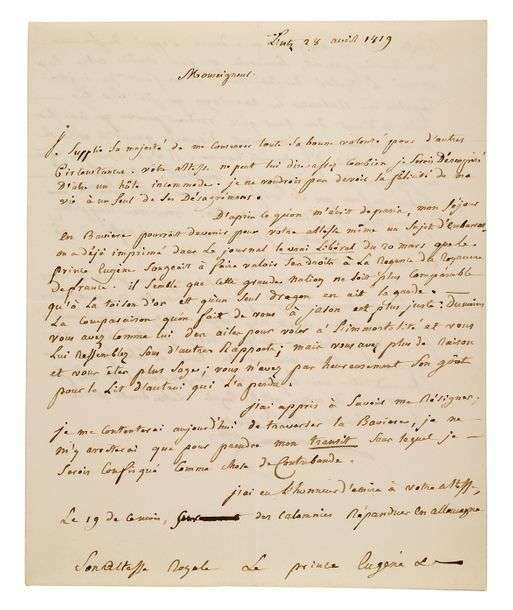 Lintz 28 avril 1819
Monseigneur
Je supplie sa majesté de me conserver toute sa bonne volonté pour d'autres
Circonstances. votre altesse ne peut lui dire assez combien je serois Désespéré
D'être un hôte incommode. je ne voudrois pas devoir la félicité de ma
vie à un seul de ses Désagrémens.
D'après ce qu'on m'écrit de paris, mon séjour
En Bavière pourroit devenir pour votre altesse même un sujet d'Embarras,
on a déjà imprimé dans le journal le vrai Libéral du 20 mars que Le
prince Eugène songeait à faire valoir ses droits à La Régence du Royaume
de france. il semble que cette grande Nation ne soit plus comparable
qu'à la toison d'or et qu'un seul dragon en ait la garde.
La Comparaison qu'on fait de vous à jason est plus juste:
vous avez comme lui des ailes pour voler à l'immortalité et vous
Lui Ressemblez sous d'autres Rapports; mais vous avez plus de Raison
et vous êtes plus sage; vous n'avez pas heureusement son goût
pour le Lit d'autrui qui l'a perdu.
j'ai appris à savoir me Résigner;
je me contenterai aujourd'hui de traverser la Bavière, je ne
m'y arrêterai que pour prendre mon transit sur lequel je
serois confisqué comme chose de Contrebande.
j'ai eu l'honneur d'écrire à votre altesse,
Le 19 de ce mois, des calomnies Répandues En allemagne
Son altesse Royale Le prince Eugène &